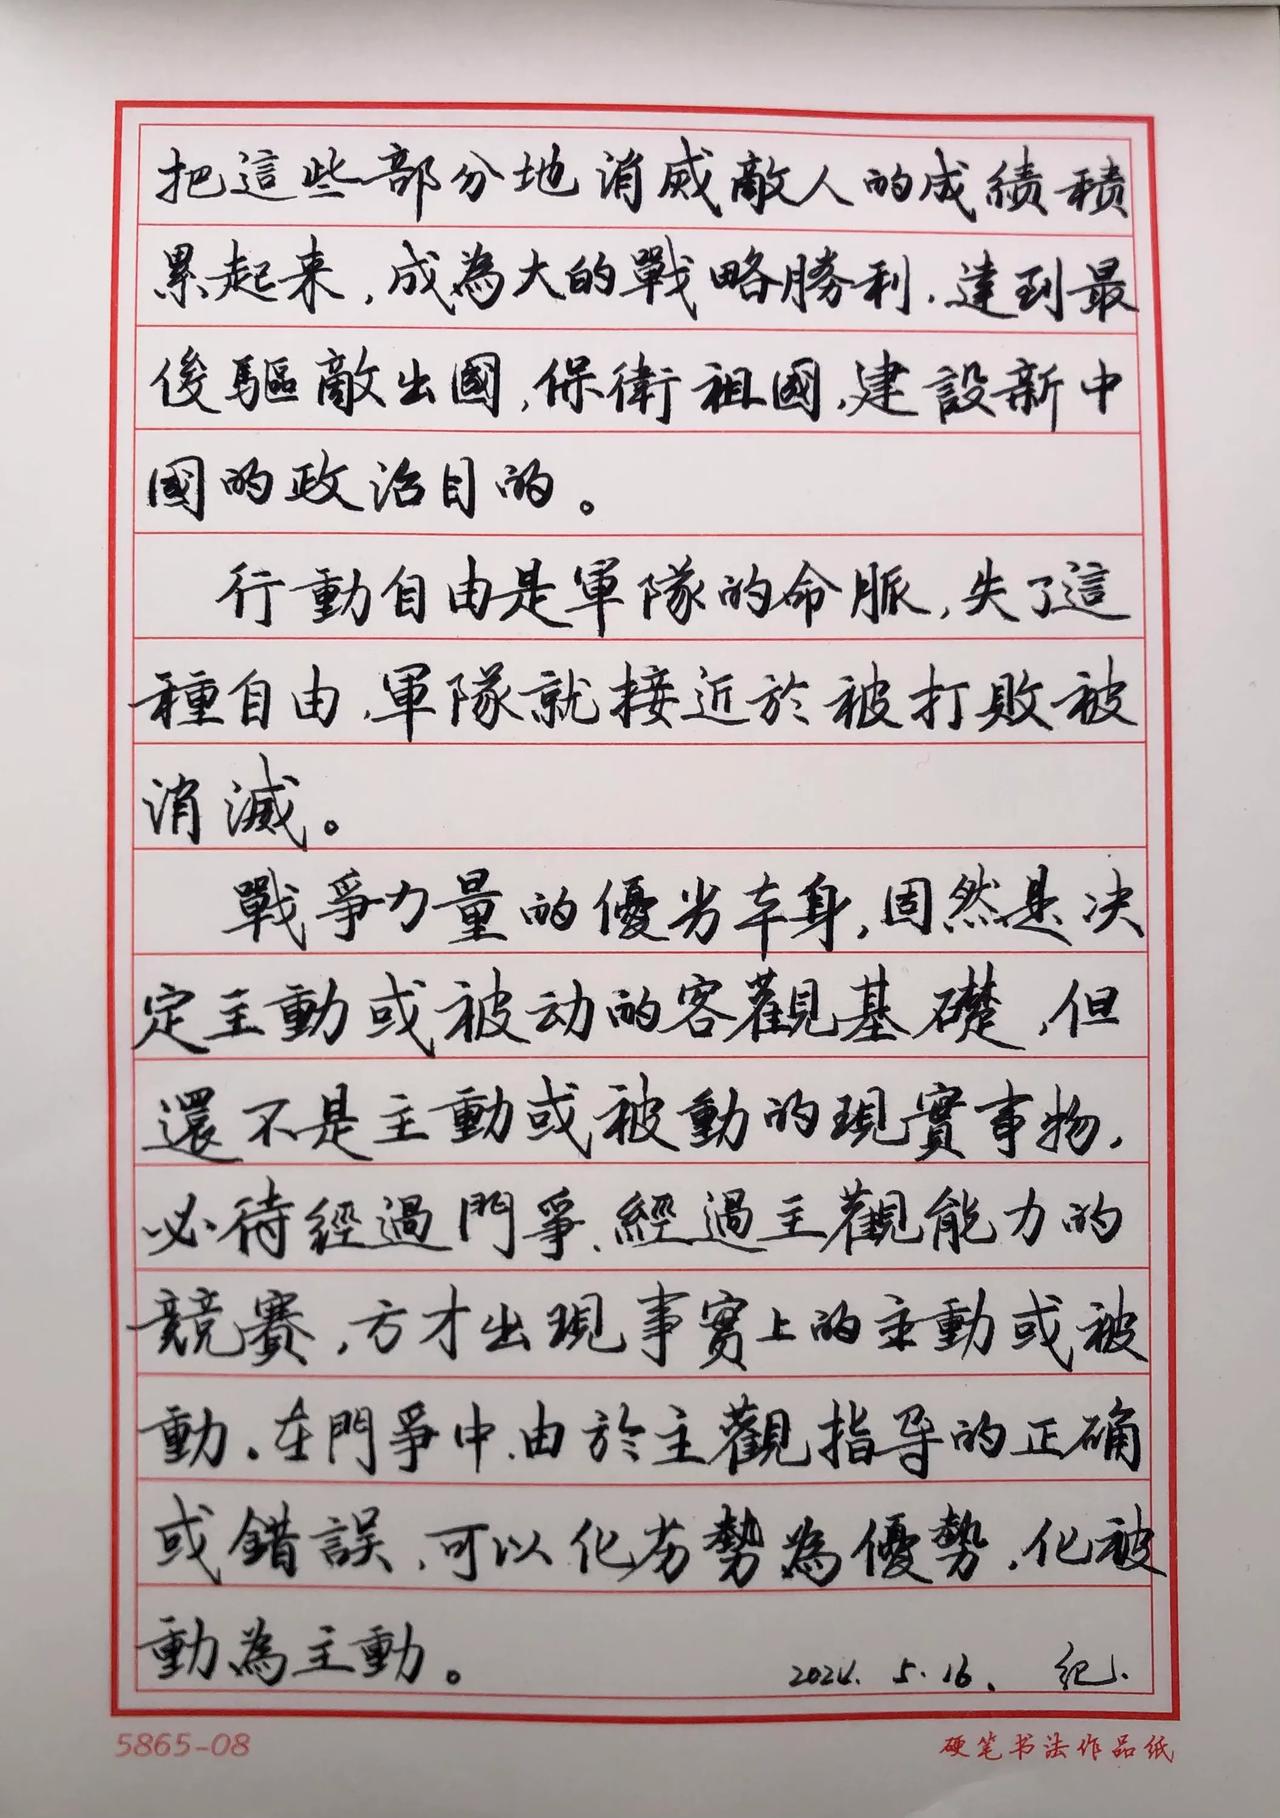 把這些部分地消威敵人的成績積
累起来，成為大的戰略勝利，達到最
後驅敵出國，保衛祖國，建設新中
國的政治目的。
行動自由是軍隊的命脈，失了這
種自由，軍隊就接近於被打敗被
消滅。
戰爭力量的優劣本身，固然是决
定主動或被动的客觀基礎，但
還不是主動或被動的現實事物，
必待經過鬥爭、經過主觀能力的
競賽，方才出現事實上的主動或被
動。在鬥爭中，由於主觀指导的正确
或錯誤，可以化劣勢為優勢，化被
動為主動。
2024.5.16.
5865-08
硬笔书法作品纸